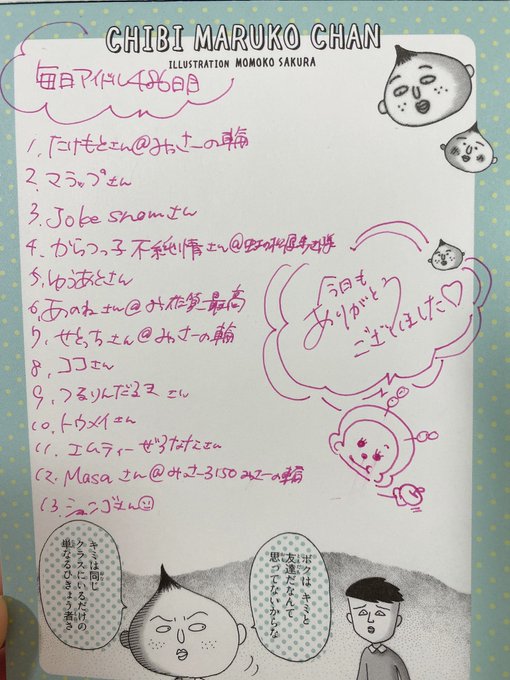 CHIBI MARUKO CHAN
ILLUSTRATION MOMOKO SAKURA
毎日アイドル486日目
1. たけもとさん@みっさーの輪
2. マラップさん
3. Jobe snowさん
4. がらつっ子 不純情さん@
5. ゆうあとさん
6. あのねさん@みお花質最高
7. せとっちさん@みっさーの輪
8. ココさん
9. つるりんだるま さん
10. トウメイさん
11. エムティーぜろななこさん
12. Masaさん@みっさー3150みっさーの輪
13. ションゴさん
今日も
ありがとう
ございました♡
ボクは キミと
友達だなんて
思ってないからな
キミは同じ
クラスにいるだけの
単なるひきょう者さ